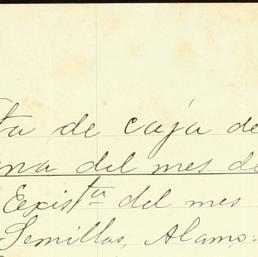 ta de caja de
na del mes de
Eexis^ta del mes
Semillas, Alamo-